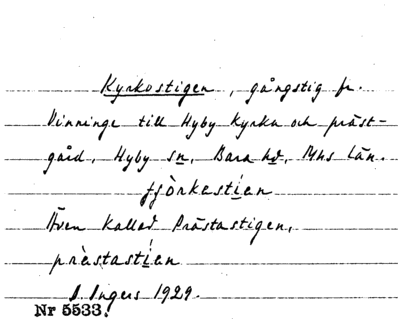 Kyrkostigen, gångstig fr.
Vinninge till Hyby kyrka och präst-
gård, Hyby sn, Bara hd, Mhs län.
fjòrkastien
Även kallad Prästastigen,
prè̀stastien
I. Ingers 1929.
Nr 5533.